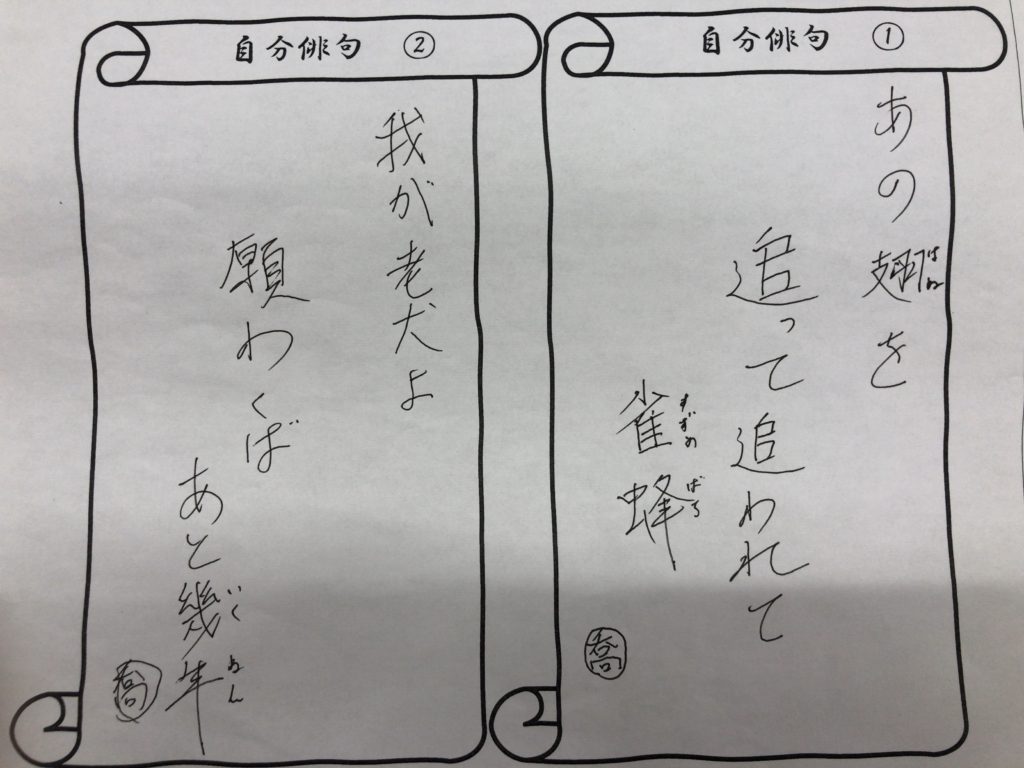 自分俳句 ①
あの翅を
はね
追って追われて
雀蜂
すずめばち
喬
自分俳句 ②
我が老犬よ
願わくば
あと幾年
いくねん
喬